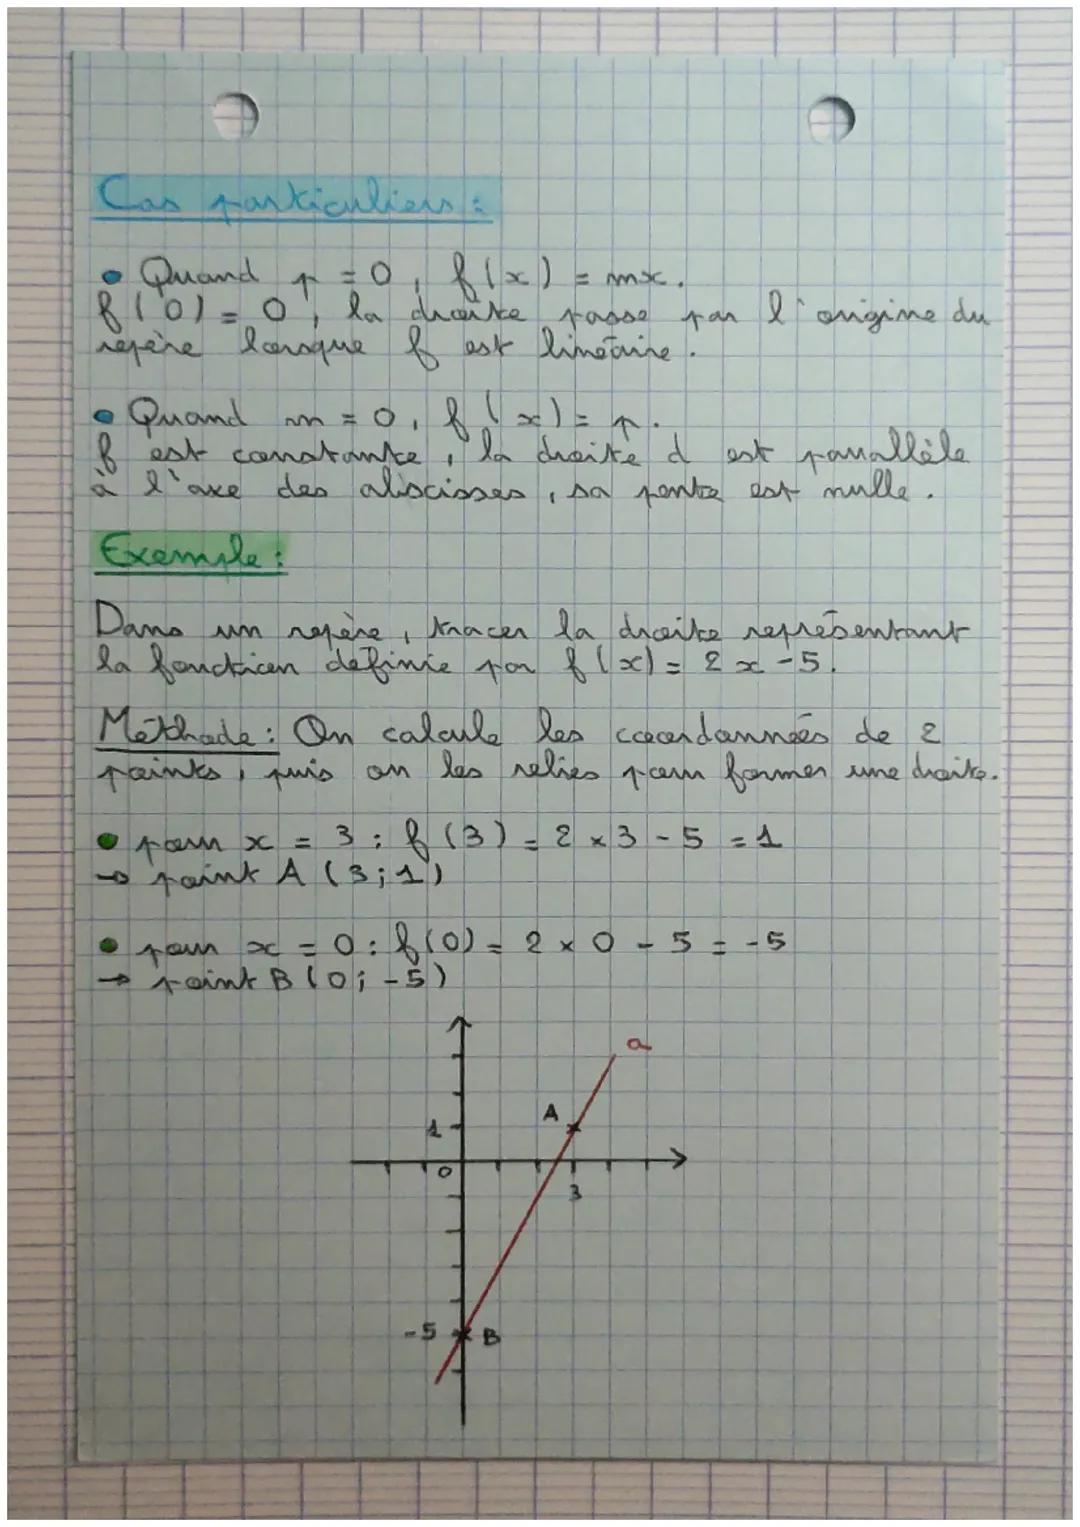 Cas particuliers :
• Quand p = 0, f(x) = mx.
f(0) = 0, la droite passe par l'origine du
repère lorsque f est linéaire.
• Quand m = 0, f(x) = p.
f est constante, la droite d est parallèle
à l'axe des abscisses, sa pente est nulle.
Exemple :
Dans un repère, tracer la droite représentant
la fonction définie par f(x) = 2x - 5.
Méthode : On calcule les coordonnées de 2
points, puis on les relies pour former une droite.
• pour x = 3 : f(3) = 2 × 3 - 5 = 1
→ point A (3;1)
• pour x = 0 : f(0) = 2 × 0 - 5 = -5
→ point B (0; -5)
a
A
1
0
3
-5
B